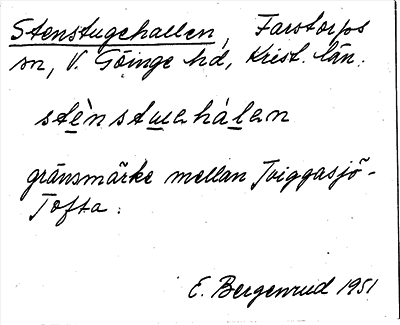 Stenstugehallen, Farstorps
sn, V. Göinge hd, Krist. län.
stènstuehálen
gränsmärke mellan Tviggasjö-
Tofta.
E. Bergenrud 1951